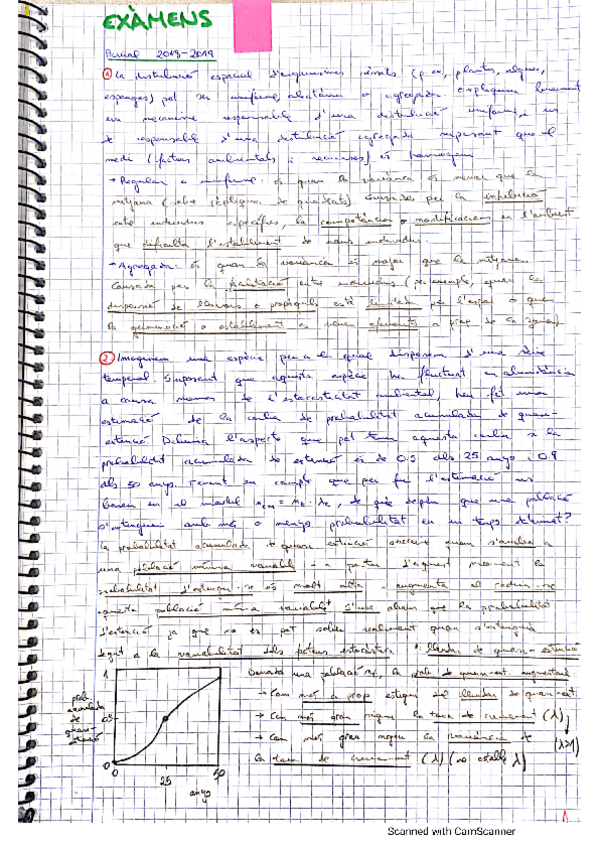 EXÀMENS
Parcial 2018-2019
① La distribució espacial d'organismes sèssils (p.ex, plantes, algues,
esponges) pot ser uniforme, aleatòria o agregada. Expliqueu breument
un mecanisme responsable d'una distribució uniforme i un
responsable d'una distribució agregada suposant que el
medi (factors ambientals i recursos) és homogeni
→ Regular o uniforme: és quan la variància és menor que la
mitjana (sobre rèpliques de quadrats). Causades per la inhibició
entre individus específics, la competència o modificacions en l'ambient
que dificulta l'establiment de nous individus.
→ Agregada: és quan la variància és major que la mitjana.
Causada per la facilitació entre individus (per exemple, quan la
dispersió de llavors o propàguls està limitada per l'espai o quan
la germinació o establiment es veuen afavorits a prop de la
② Imaginem una espècie per a la qual disposem d'una sèrie
temporal. Suposant que aquesta espècie ha fluctuat en abundància
a causa només de l'estocasticitat ambiental, heu fet una
estimació de la corba de probabilitat acumulada de quasi-
extinció. Dibuixa l'aspecte que pot tenir aquesta corba si la
probabilitat acumulada de extinció és de 0.5 als 25 anys i 0.9
als 50 anys. Tenint en compte que per fer l'estimació ens
basem en el model de què depèn que una població
s'extingeixi amb més o menys probabilitat en un temps determinat?
La probabilitat acumulada de quasi extinció quan s'arriba a
una població mínima viable i a partir d'aquest moment la
probabilitat d'extingir-se és molt alta augmenta al reduir-se
aquesta població mínima viable. S'usa abans que la probabilitat
d'extinció ja que no es pot saber realment quan s'extingirà
degut a la variabilitat dels factors estocàstics. *llindar de quasi-extinció
Donada una població, la prob. de quasi-ext augmentarà
→ Com més a prop estigui del llindar de quasi-ext.
→ Com més gran sigui la taxa de creixement (λ)
→ Com més gran sigui la variància de (λ>1)
la taxa de creixement (λ) (no estable λ)
1
prob.
acumulada
de
quasi-
extinció
0.5
0
0
25
50
anys
Scanned with CamScanner